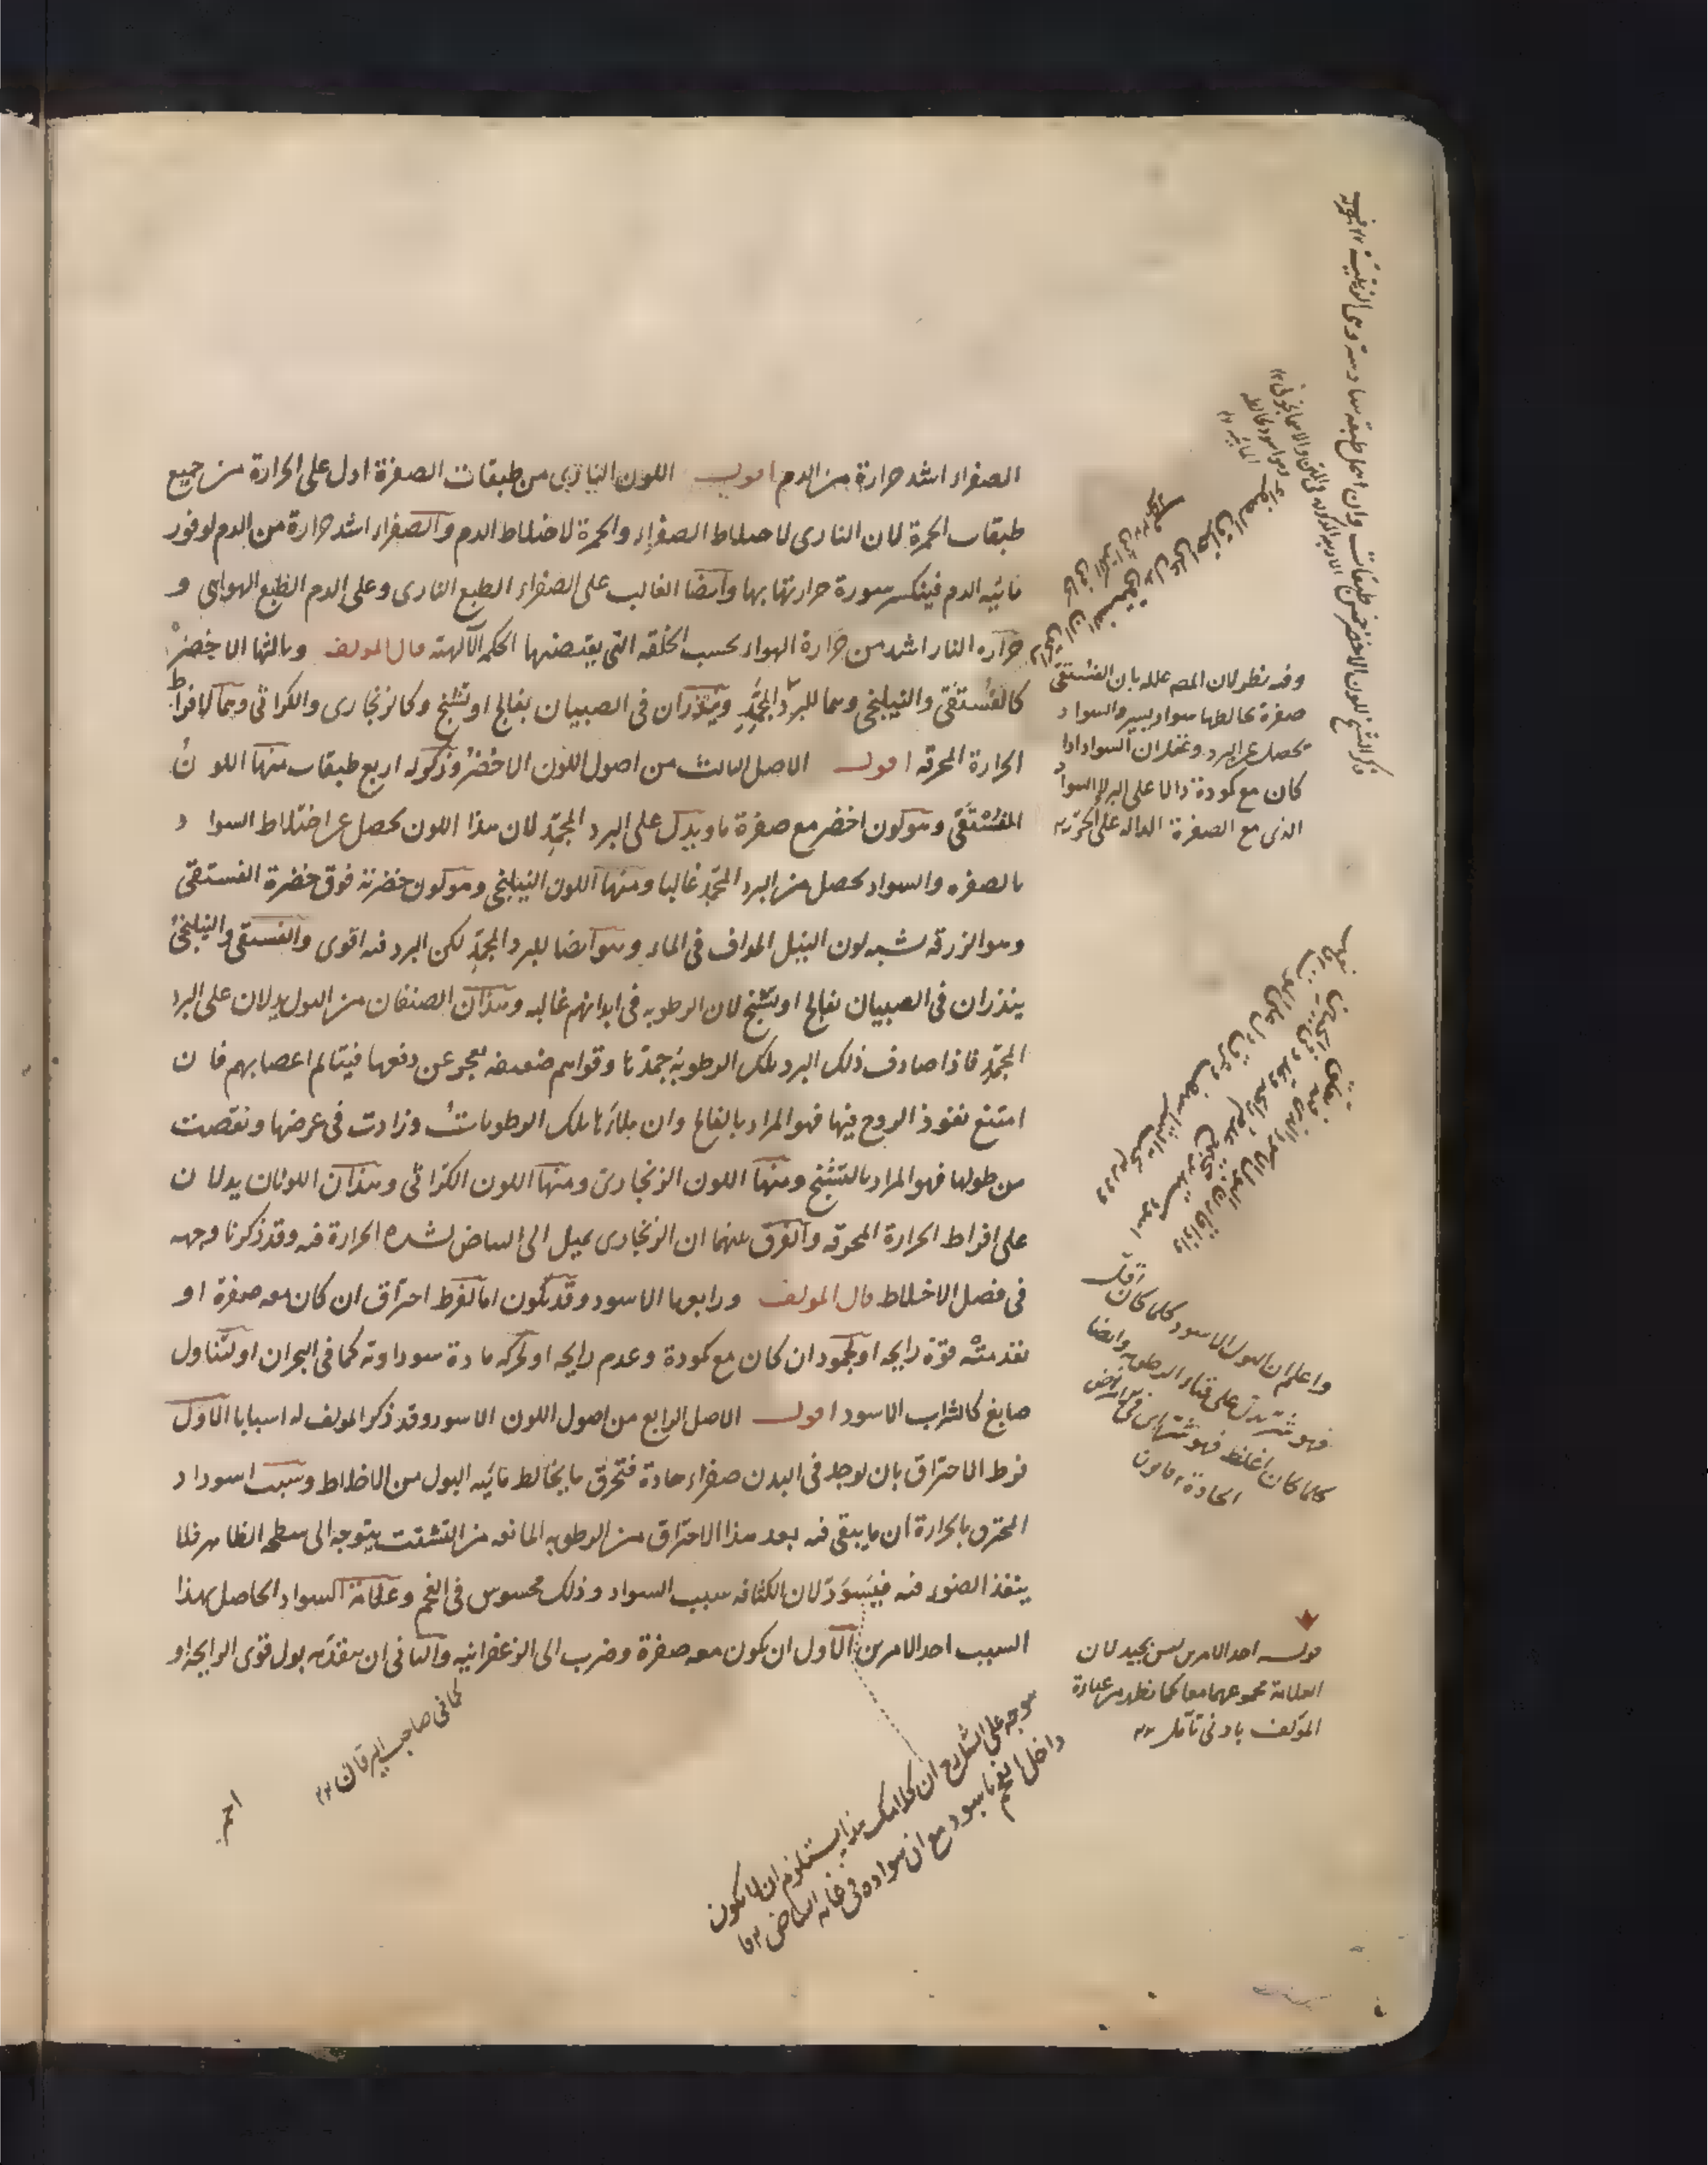 الصفراء اشد حرارة من الدم اقول اللون الناري من طبقات الصفرة ادل على الحرارة من جميع
طبقات الحمرة لان الناري لاختلاط الصفراء والحمرة لاختلاط الدم والصفراء اشد حرارة من الدم لوفور
مائيه الدم فينكسر سورة حرارتها بها وايضا الغالب على الصفراء الطبع الناري وعلى الدم الطبع الهوايي و
حراره النار اشد من حرارة الهواء بحسب الخلقه التي يقتضيها الحكمه الآلهيه قال المولف وثالثها الاخضر
كالفستقي والنيلنجي وهما للبرد المجمد وينذران في الصبيان بفالج او تشنج وكالزنجاري والكراثي وهما لافراط
الحرارة المحرقه اقول الاصل الثالث من اصول اللون الاخضر وذكر له اربع طبقات منها اللون
الفستقي وهو لون اخضر مع صفرة ما ويدل على البرد المجمد لان هذا اللون يحصل عن اختلاط السواد
بالصفره والسواد يحصل من البرد المجمد غالبا ومنها اللون النيلنجي وهو لون خضرته فوق خضرة الفستقي
وهو الزرقه شبه لون النيل المداف في الماء وهو ايضا للبرد المجمد لكن البرد فيه اقوى والفستقي والنيلنجي
ينذران في الصبيان بفالج او تشنج لان الرطوبه في ابدانهم غالبه وهذان الصنفان من البول يدلان على البرد
المجمد فاذا صادف ذلك البرد تلك الرطوبة جمدتها وقواهم ضعيفه تعجز عن دفعها فيتالم اعصابهم فان
امتنع نفوذ الروح فيها فهو المراد بالفالج وان ملأتها تلك الرطوبات وزادت في عرضها ونقصت
من طولها فهو المراد بالتشنج ومنها اللون الزنجاري ومنها اللون الكراثي وهذان اللونان يدلان
على افراط الحرارة المحرقه والفرق بينهما ان الزنجاري يميل الى البياض لشده الحرارة فيه وقد ذكرنا وجهه
في فصل الاخلاط قال المولف ورابعها الاسود وقد يكون اما لفرط احتراق ان كان معه صفرة او
تقدمته قوة رايحه او لجمود ان كان مع كمودة وعدم رايحه او لحركه مادة سوداويه كما في البحران او لتناول
صابغ كالشراب الاسود اقول الاصل الرابع من اصول اللون الاسود وقد ذكر المولف له اسبابا الاول
فرط الاحتراق بان يوجد في البدن صفراء حادة فتحرق ما يخالط مائيه البول من الاخلاط وسبب اسوداد
المحترق بالحرارة ان ما يبقى فيه بعد هذا الاحتراق من الرطوبه المانعه من التشتت يتوجه الى سطحه الظاهر فلا
ينفذ الضوء فيه فيسود لان الكثافه سبب السواد وذلك محسوس في الفحم وعلامة السواد الحاصل بهذا
السبب احد الامرين الاول ان يكون معه صفرة وضرب الى الزعفرانيه والثاني ان يتقدمه بول قوي الرايحه او
احمر
كما في صاحب اليرقان
يتوجه على الشارح ان كلامك هذا يستلزم ان لا يكون
داخل الفحم اسود مع ان سواده في غايه
وفيه نظر لان المص علله بان الفستقي
صفرة يخالطها سواد يسير والسواد
يحصل عن البرد وغفل ان السواد اذا
كان مع كمودة دالا على البرد لا السواد
الذي مع الصفرة الداله على الحر
واعلم ان البول الاسود كلما كان اقل
فهو شر يدل على فناء الرطوبه وايضا
كلما كان اغلظ فهو شر في الامراض
الحادة قانون
قوله احد الامرين ليس بجيد لان
العلامة مجموعهما معا كما يظهر من عبارة
المؤلف بادنى تأمل